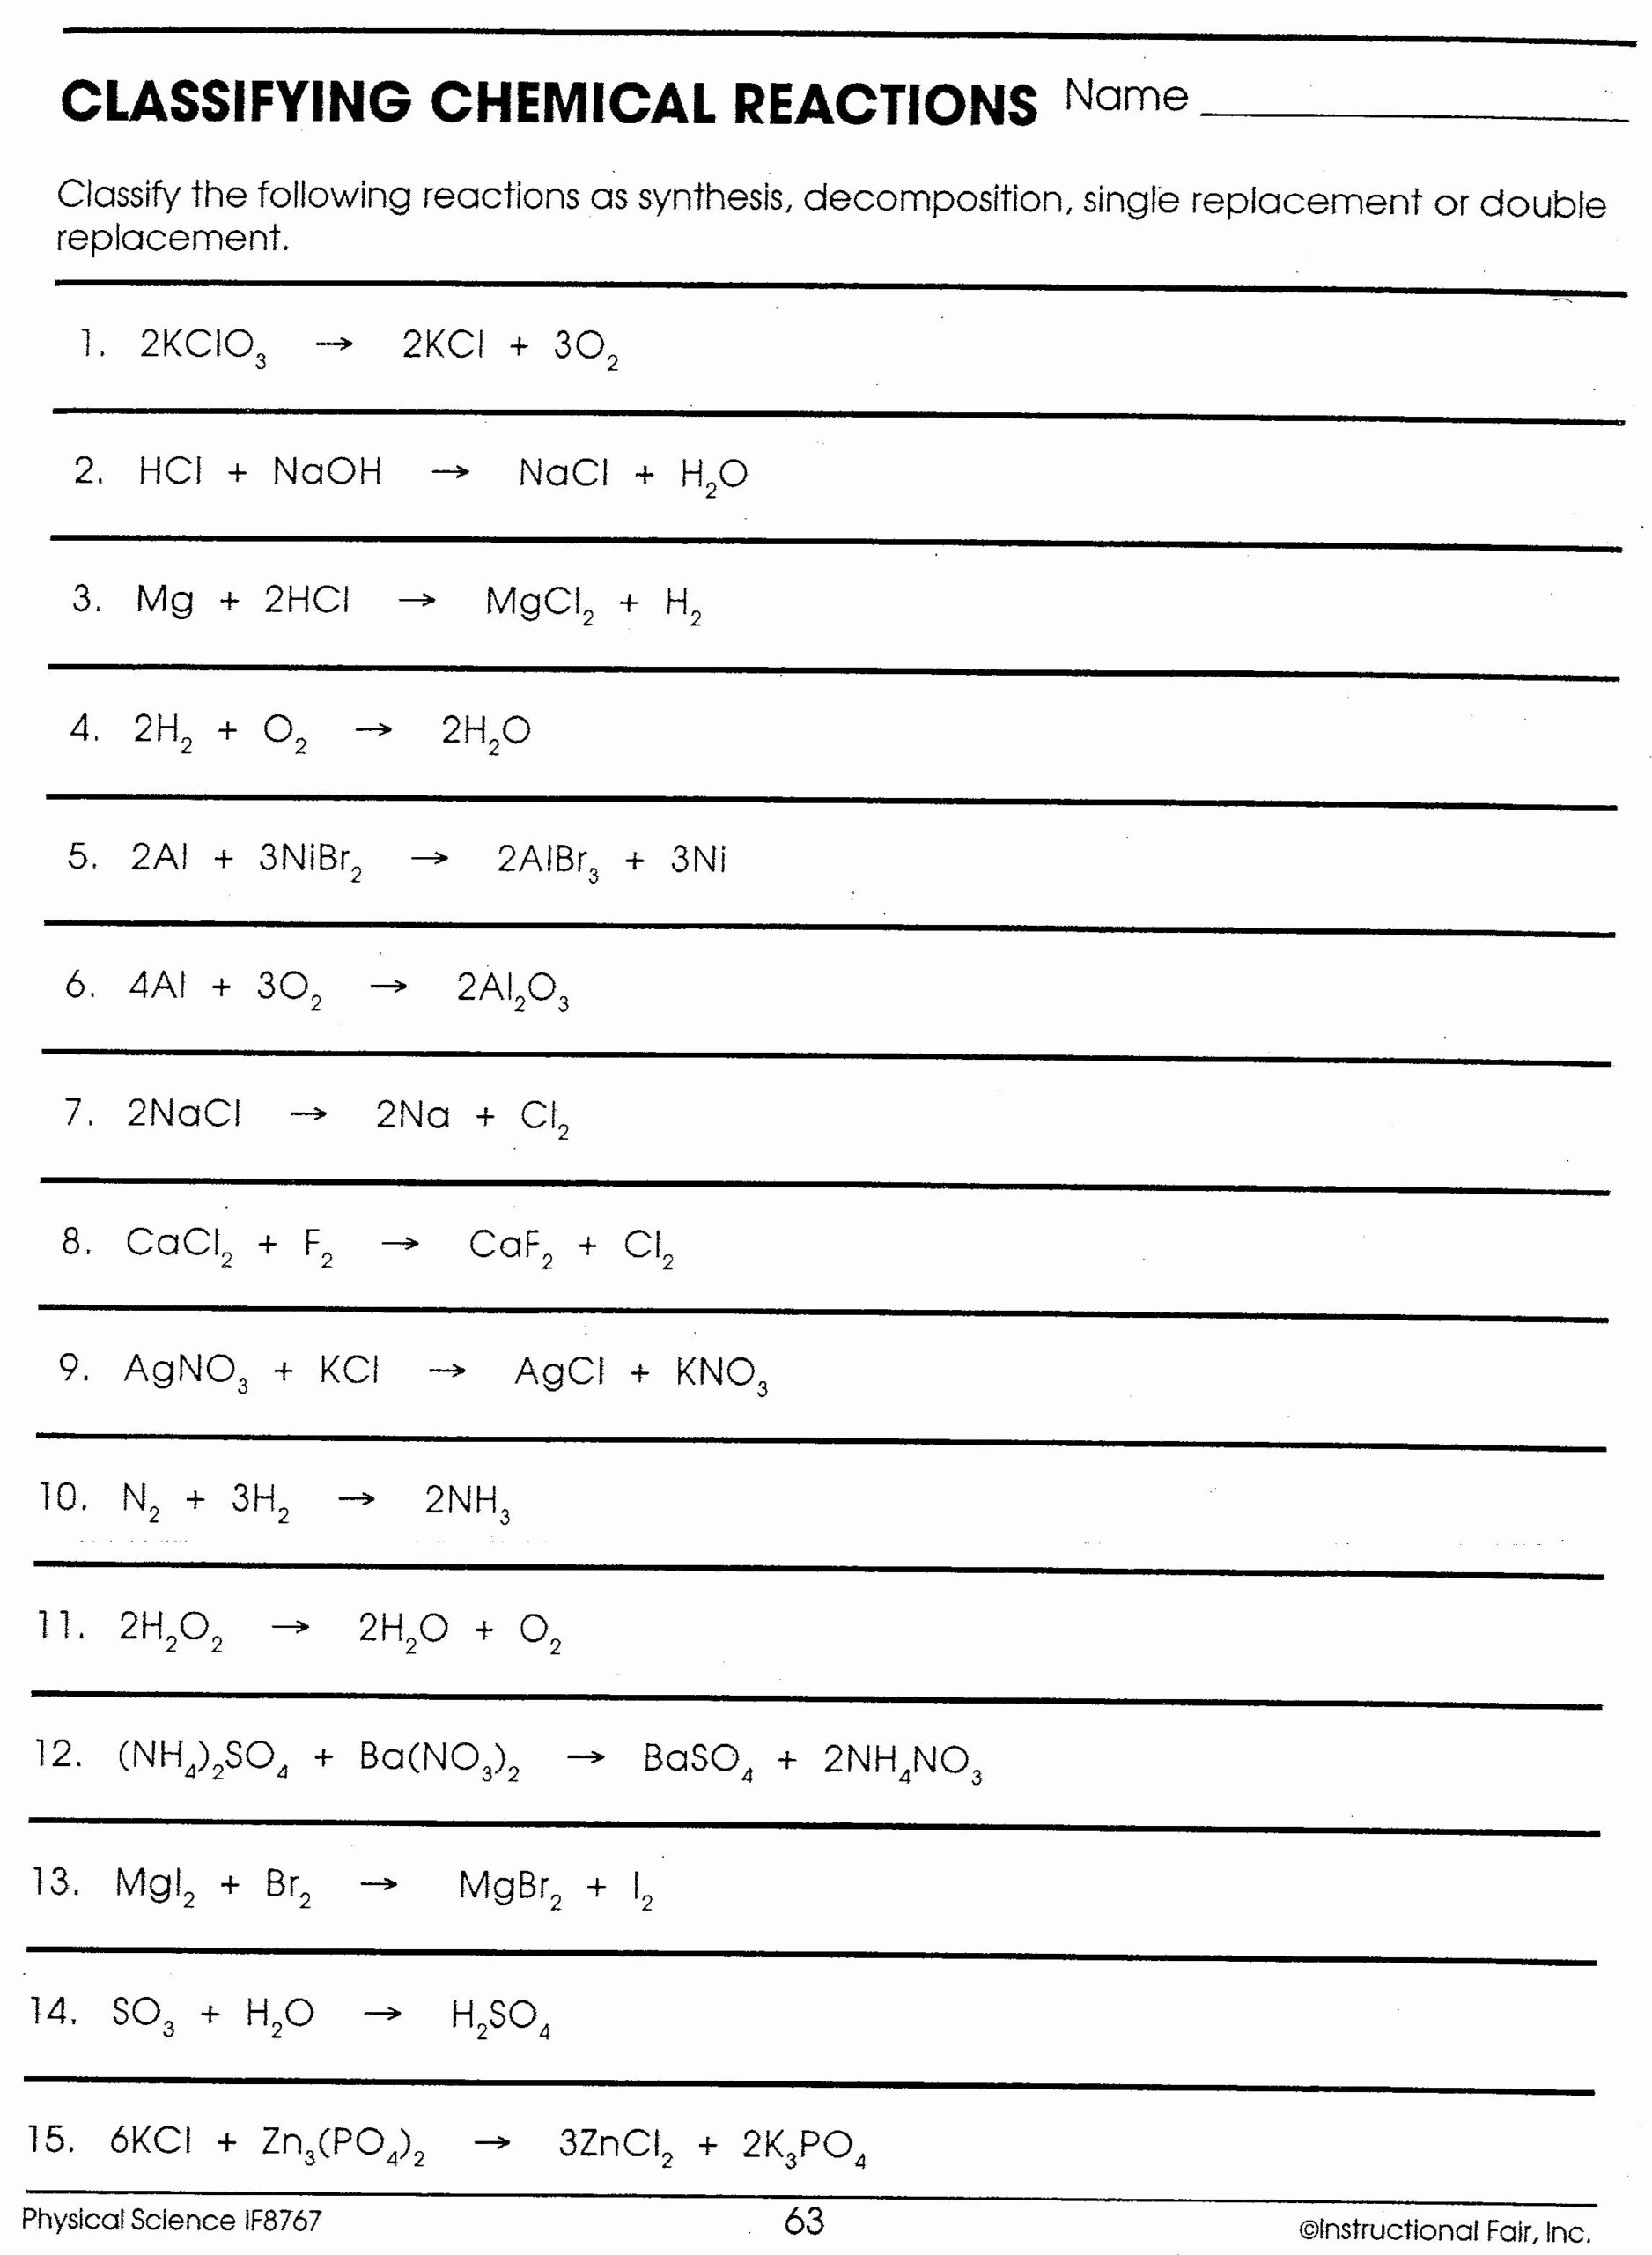 CLASSIFYING CHEMICAL REACTIONS Name
Classify the following reactions as synthesis, decomposition, single replacement or double
replacement.
1. 2KClO₃ → 2KCl + 3O₂
2. HCl + NaOH → NaCl + H₂O
3. Mg + 2HCl → MgCl₂ + H₂
4. 2H₂ + O₂ → 2H₂O
5. 2Al + 3NiBr₂ → 2AlBr₃ + 3Ni
6. 4Al + 3O₂ → 2Al₂O₃
7. 2NaCl → 2Na + Cl₂
8. CaCl₂ + F₂ → CaF₂ + Cl₂
9. AgNO₃ + KCl → AgCl + KNO₃
10. N₂ + 3H₂ → 2NH₃
11. 2H₂O₂ → 2H₂O + O₂
12. (NH₄)₂SO₄ + Ba(NO₃)₂ → BaSO₄ + 2NH₄NO₃
13. MgI₂ + Br₂ → MgBr₂ + I₂
14. SO₃ + H₂O → H₂SO₄
15. 6KCl + Zn₃(PO₄)₂ → 3ZnCl₂ + 2K₃PO₄
Physical Science IF8767 63 ©Instructional Fair, Inc.